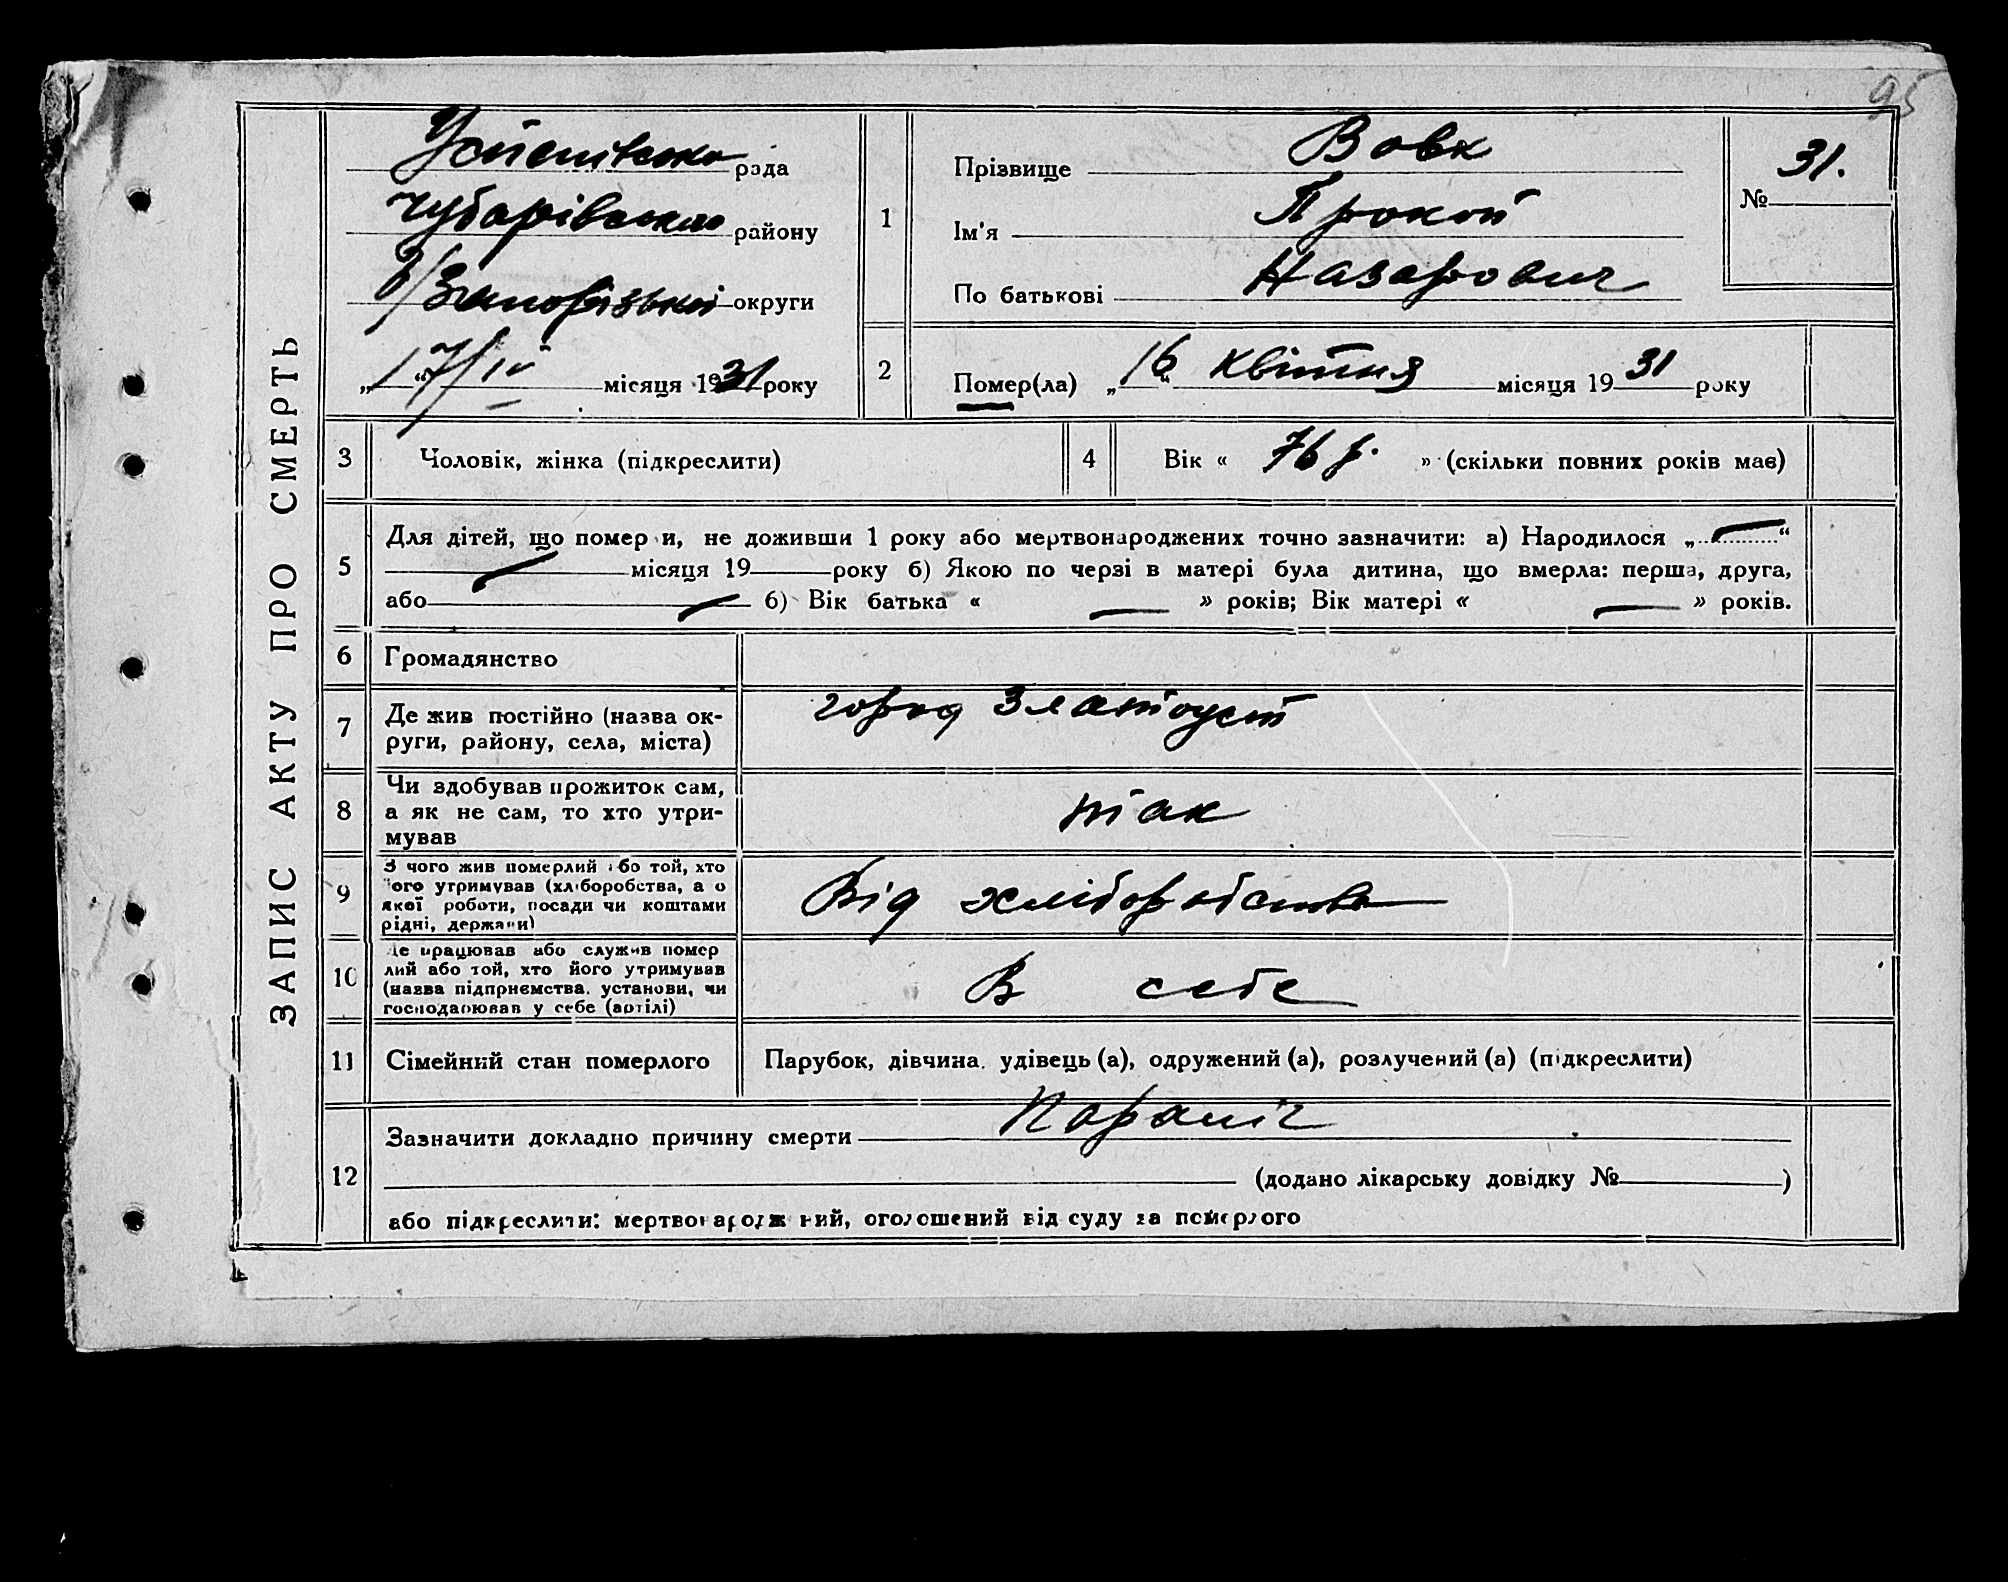 95
ЗАПИС АКТУ ПРО СМЕРТЬ
Успенівська рада
Чубарівського району
б/Запорізької округи
„17/IV“ місяця 1931 року
1
Прізвище Вовк
Ім'я Прокоп
По батькові Назарович
№ 31.
2
Помер(ла) „16“ квітня місяця 1931 року
3 Чоловік, жінка (підкреслити)
4 Вік « 76 р. » (скільки повних років має)
5 Для дітей, що померли, не доживши 1 року або мертвонароджених точно зазначити: а) Народилося „ — “
— місяця 19 року б) Якою по черзі в матері була дитина, що вмерла: перша, друга,
або — б) Вік батька « — » років; Вік матері « — » років.
6 Громадянство
7 Де жив постійно (назва ок-
руги, району, села, міста)
город Златоуст
8 Чи здобував прожиток сам,
а як не сам, то хто утри-
мував
так
9 З чого жив померлий або той, хто
його утримував (хліборобства, а о
якої роботи, посади чи коштами
рідні, держави)
Від хліборобства
10 Де працював або служив помер
лий або той, хто його утримував
(назва підприємства, установи, чи
господарював у себе (артілі)
В себе
11 Сімейний стан померлого
Парубок, дівчина, удівець (а), одружений (а), розлучений (а) (підкреслити)
12
Зазначити докладно причину смерти Параліч
(додано лікарську довідку № )
або підкреслити: мертвонароджений, оголошений від суду за померлого